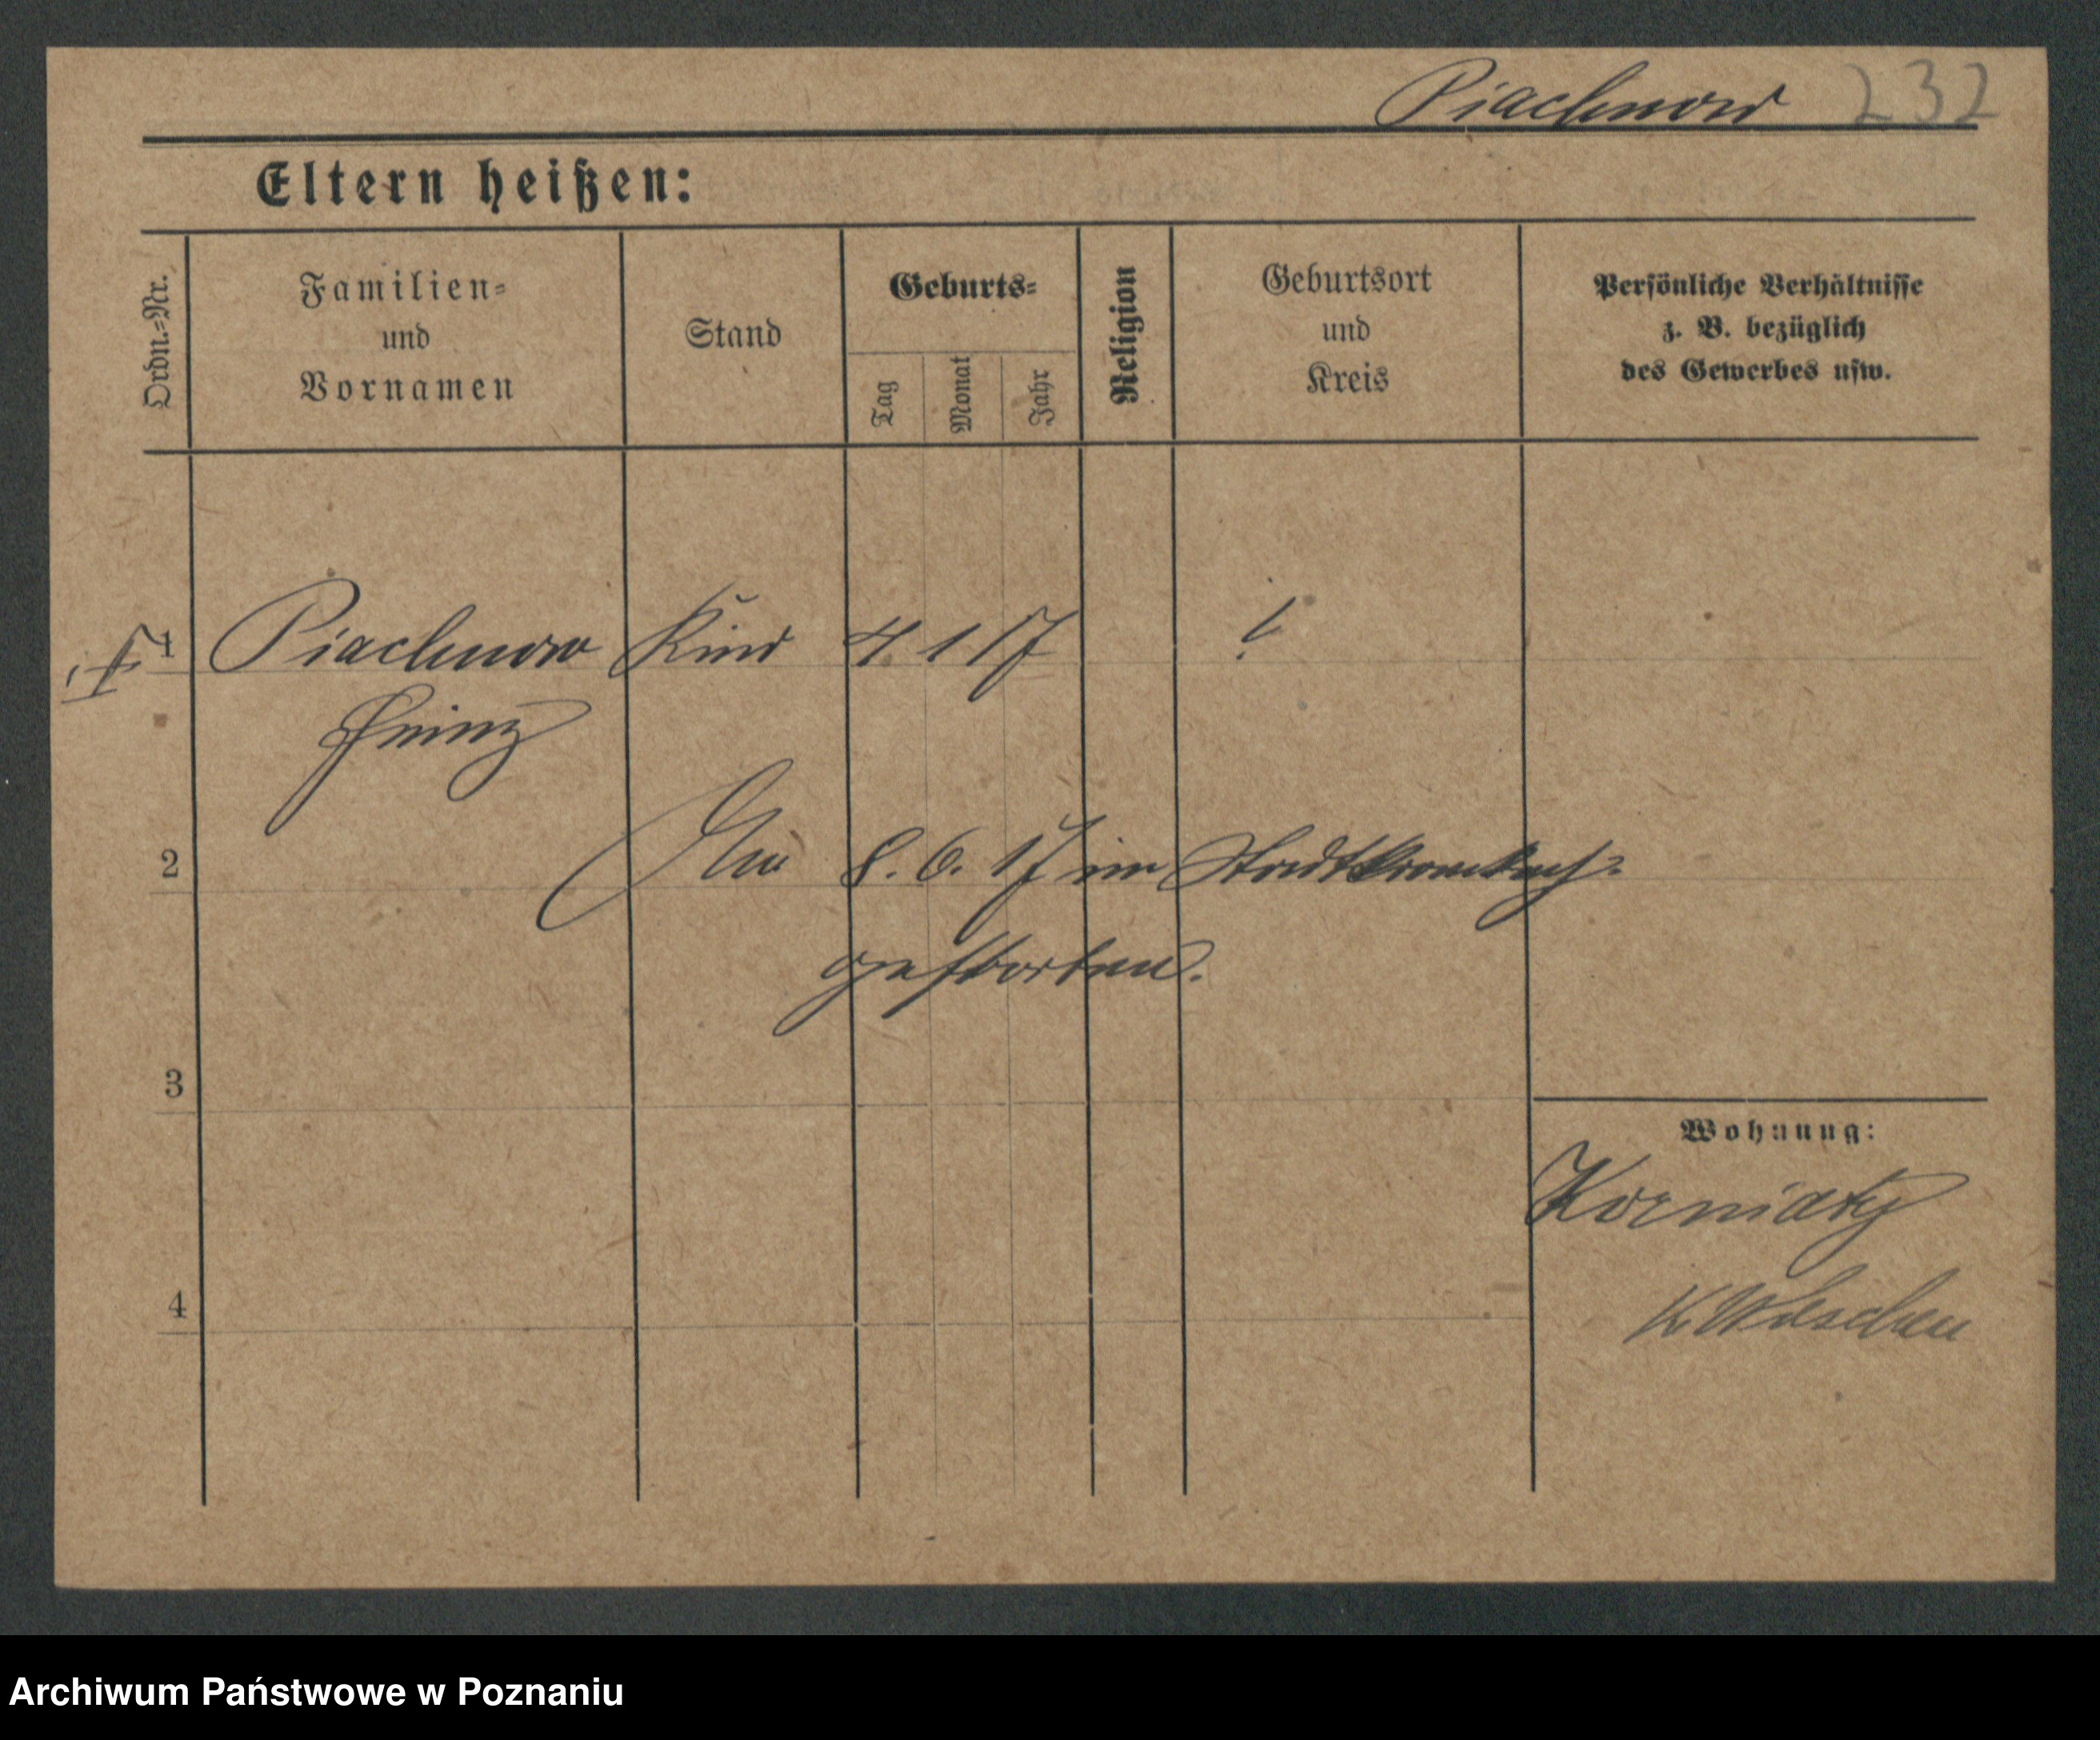 Piachnow 232
Eltern heißen:
Ordn.=Nr.
Familien=
und
Vornamen
Stand
Geburts=
Tag
Monat
Jahr
Religion
Geburtsort
und
Kreis
Persönliche Verhältnisse
z. B. bezüglich
des Gewerbes usw.
1 Piachnow Kind 4 1 17 ?
Heinz
2 Am 8. 6. 17 im Stadtkrankhs.
gestorben.
3
Wohnung:
Korniaty
4
K. Wreschen
Archiwum Państwowe w Poznaniu